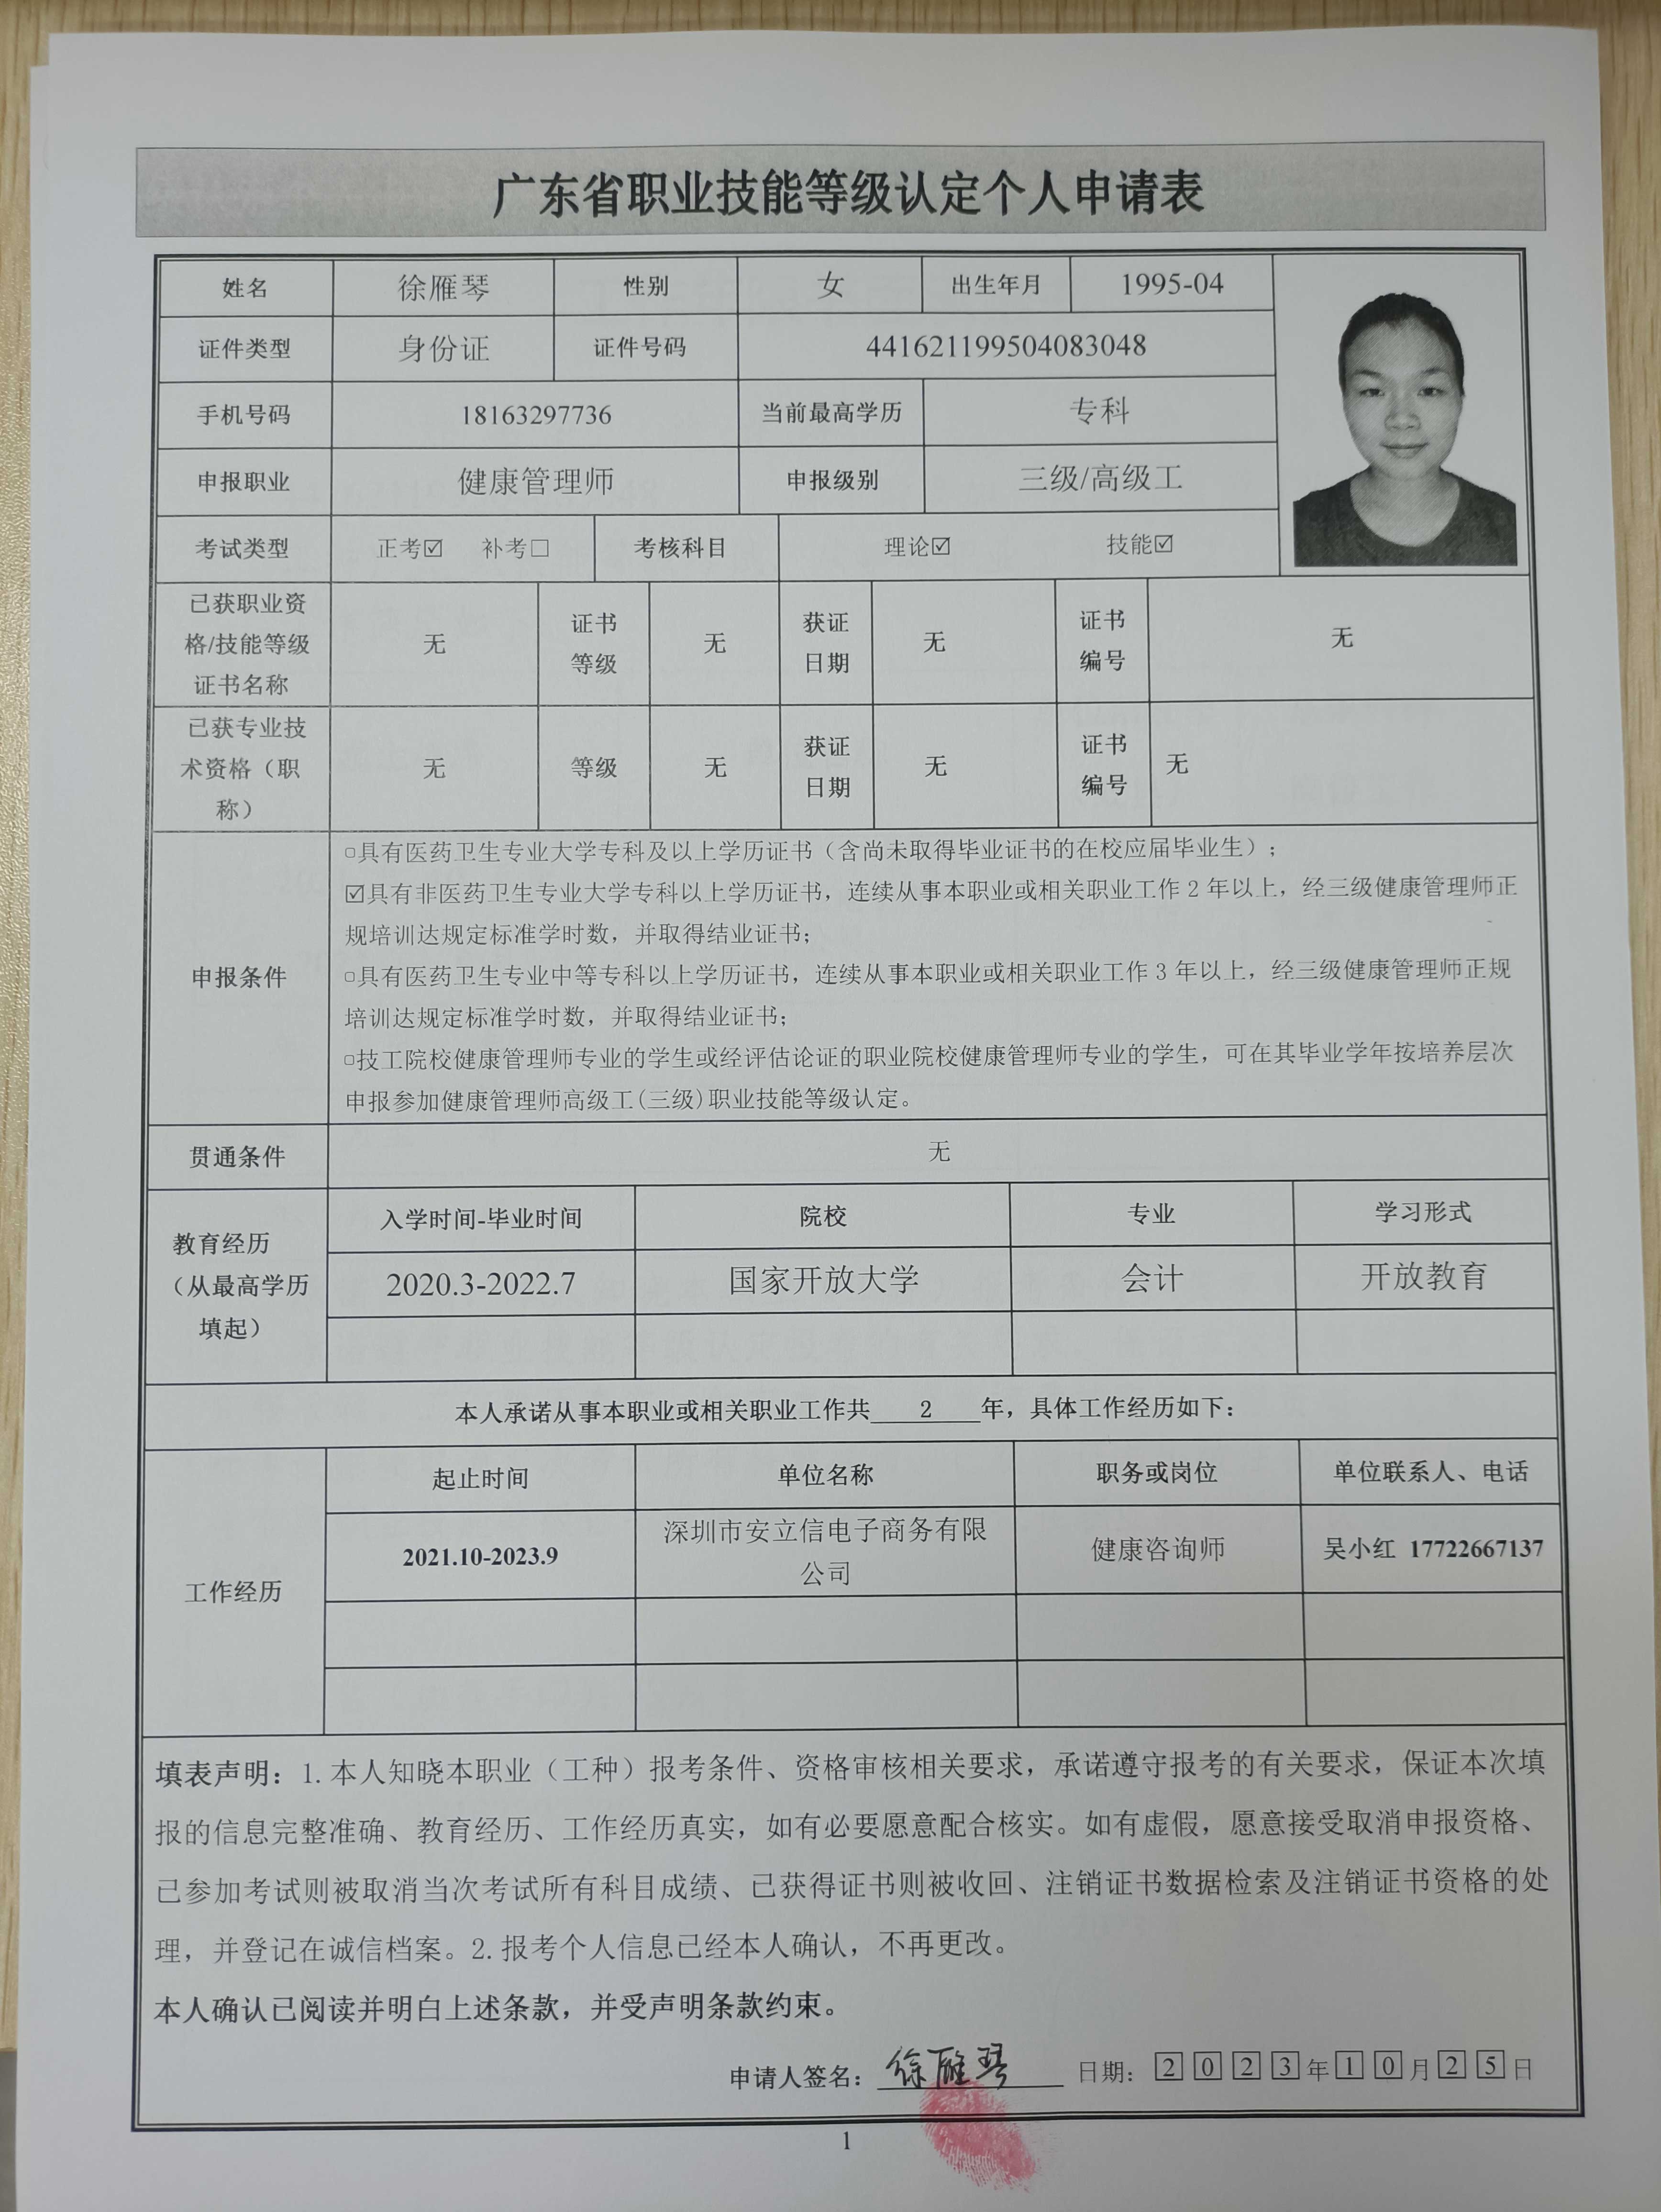 广东省职业技能等级认定个人申请表
姓名 徐雁琴 性别 女 出生年月 1995-04
证件类型 身份证 证件号码 441621199504083048
手机号码 18163297736 当前最高学历 专科
申报职业 健康管理师 申报级别 三级/高级工
考试类型 正考☑ 补考☐ 考核科目 理论☑ 技能☑
已获职业资格/技能等级证书名称 无 证书等级 无 获证日期 无 证书编号 无
已获专业技术资格（职称） 无 等级 无 获证日期 无 证书编号 无
申报条件
□具有医药卫生专业大学专科及以上学历证书（含尚未取得毕业证书的在校应届毕业生）；
☑具有非医药卫生专业大学专科以上学历证书，连续从事本职业或相关职业工作 2 年以上，经三级健康管理师正
规培训达规定标准学时数，并取得结业证书；
□具有医药卫生专业中等专科以上学历证书，连续从事本职业或相关职业工作 3 年以上，经三级健康管理师正规
培训达规定标准学时数，并取得结业证书；
□技工院校健康管理师专业的学生或经评估论证的职业院校健康管理师专业的学生，可在其毕业学年按培养层次
申报参加健康管理师高级工(三级)职业技能等级认定。
贯通条件 无
教育经历（从最高学历填起）
入学时间-毕业时间 院校 专业 学习形式
2020.3-2022.7 国家开放大学 会计 开放教育
本人承诺从事本职业或相关职业工作共 2 年，具体工作经历如下：
工作经历
起止时间 单位名称 职务或岗位 单位联系人、电话
2021.10-2023.9 深圳市安立信电子商务有限公司 健康咨询师 吴小红 17722667137
填表声明：1.本人知晓本职业（工种）报考条件、资格审核相关要求，承诺遵守报考的有关要求，保证本次填
报的信息完整准确、教育经历、工作经历真实，如有必要愿意配合核实。如有虚假，愿意接受取消申报资格、
已参加考试则被取消当次考试所有科目成绩、已获得证书则被收回、注销证书数据检索及注销证书资格的处
理，并登记在诚信档案。2.报考个人信息已经本人确认，不再更改。
本人确认已阅读并明白上述条款，并受声明条款约束。
申请人签名：徐雁琴 日期：2023年10月25日
1